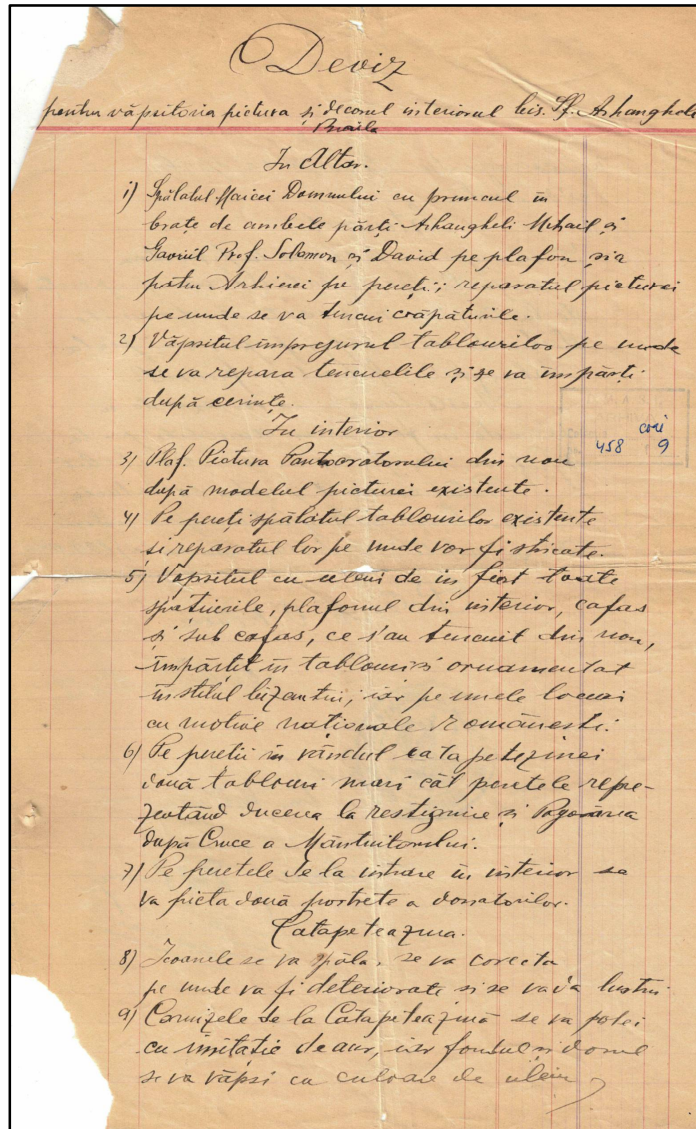 Deviz
pentru văpsitoria pictura și decorul interiorul bis. Sf. Arhangheli
Braila
In Altar.
1) Spălatul Maicei Domnului cu pruncul în
brațe de ambele părți Arhangheli Mihail și
Gavriil Prof. Solomon și David pe plafon și a
patru Arhierei pe pereți; reparatul picturei
pe unde se va tencui crăpăturile.
2) Văpsitul împrejurul tablourilor pe unde
se va repara tencuelile și se va împărți
după cerințe.
In interior
cori
458 9
3) Plaf. Pictura Pantocratorului din nou
după modelul picturei existente.
4) Pe pereți spălatul tablourilor existente
si reparatul lor pe unde vor fi stricate.
5) Vapsitul cu uleiu de in fiert toate
spațiurile, plafonul din interior, cafas
și sub cafas, ce s'au tencuit din nou,
împărțit în tablouri și ornamentat
în stilul bizantin; iar pe unele locuri
cu motive naționale românești.
6) Pe pereții în rândul catapetezmei
două tablouri mari cât peretele repre-
zentând ducerea la restignire și Pogorârea
după Cruce a Mântuitorului.
7) Pe peretele de la intrare în interior se
va picta două portrete a donatorilor.
Catapeteazma.
8) Icoanele se va spăla, se va corecta
pe unde va fi deteriorate si se va da lustru
9) Cornizele de la Catapeteazmă se va polei
cu imitatie de aur, iar fondul și dosul
se va văpsi cu culoare de uleiu